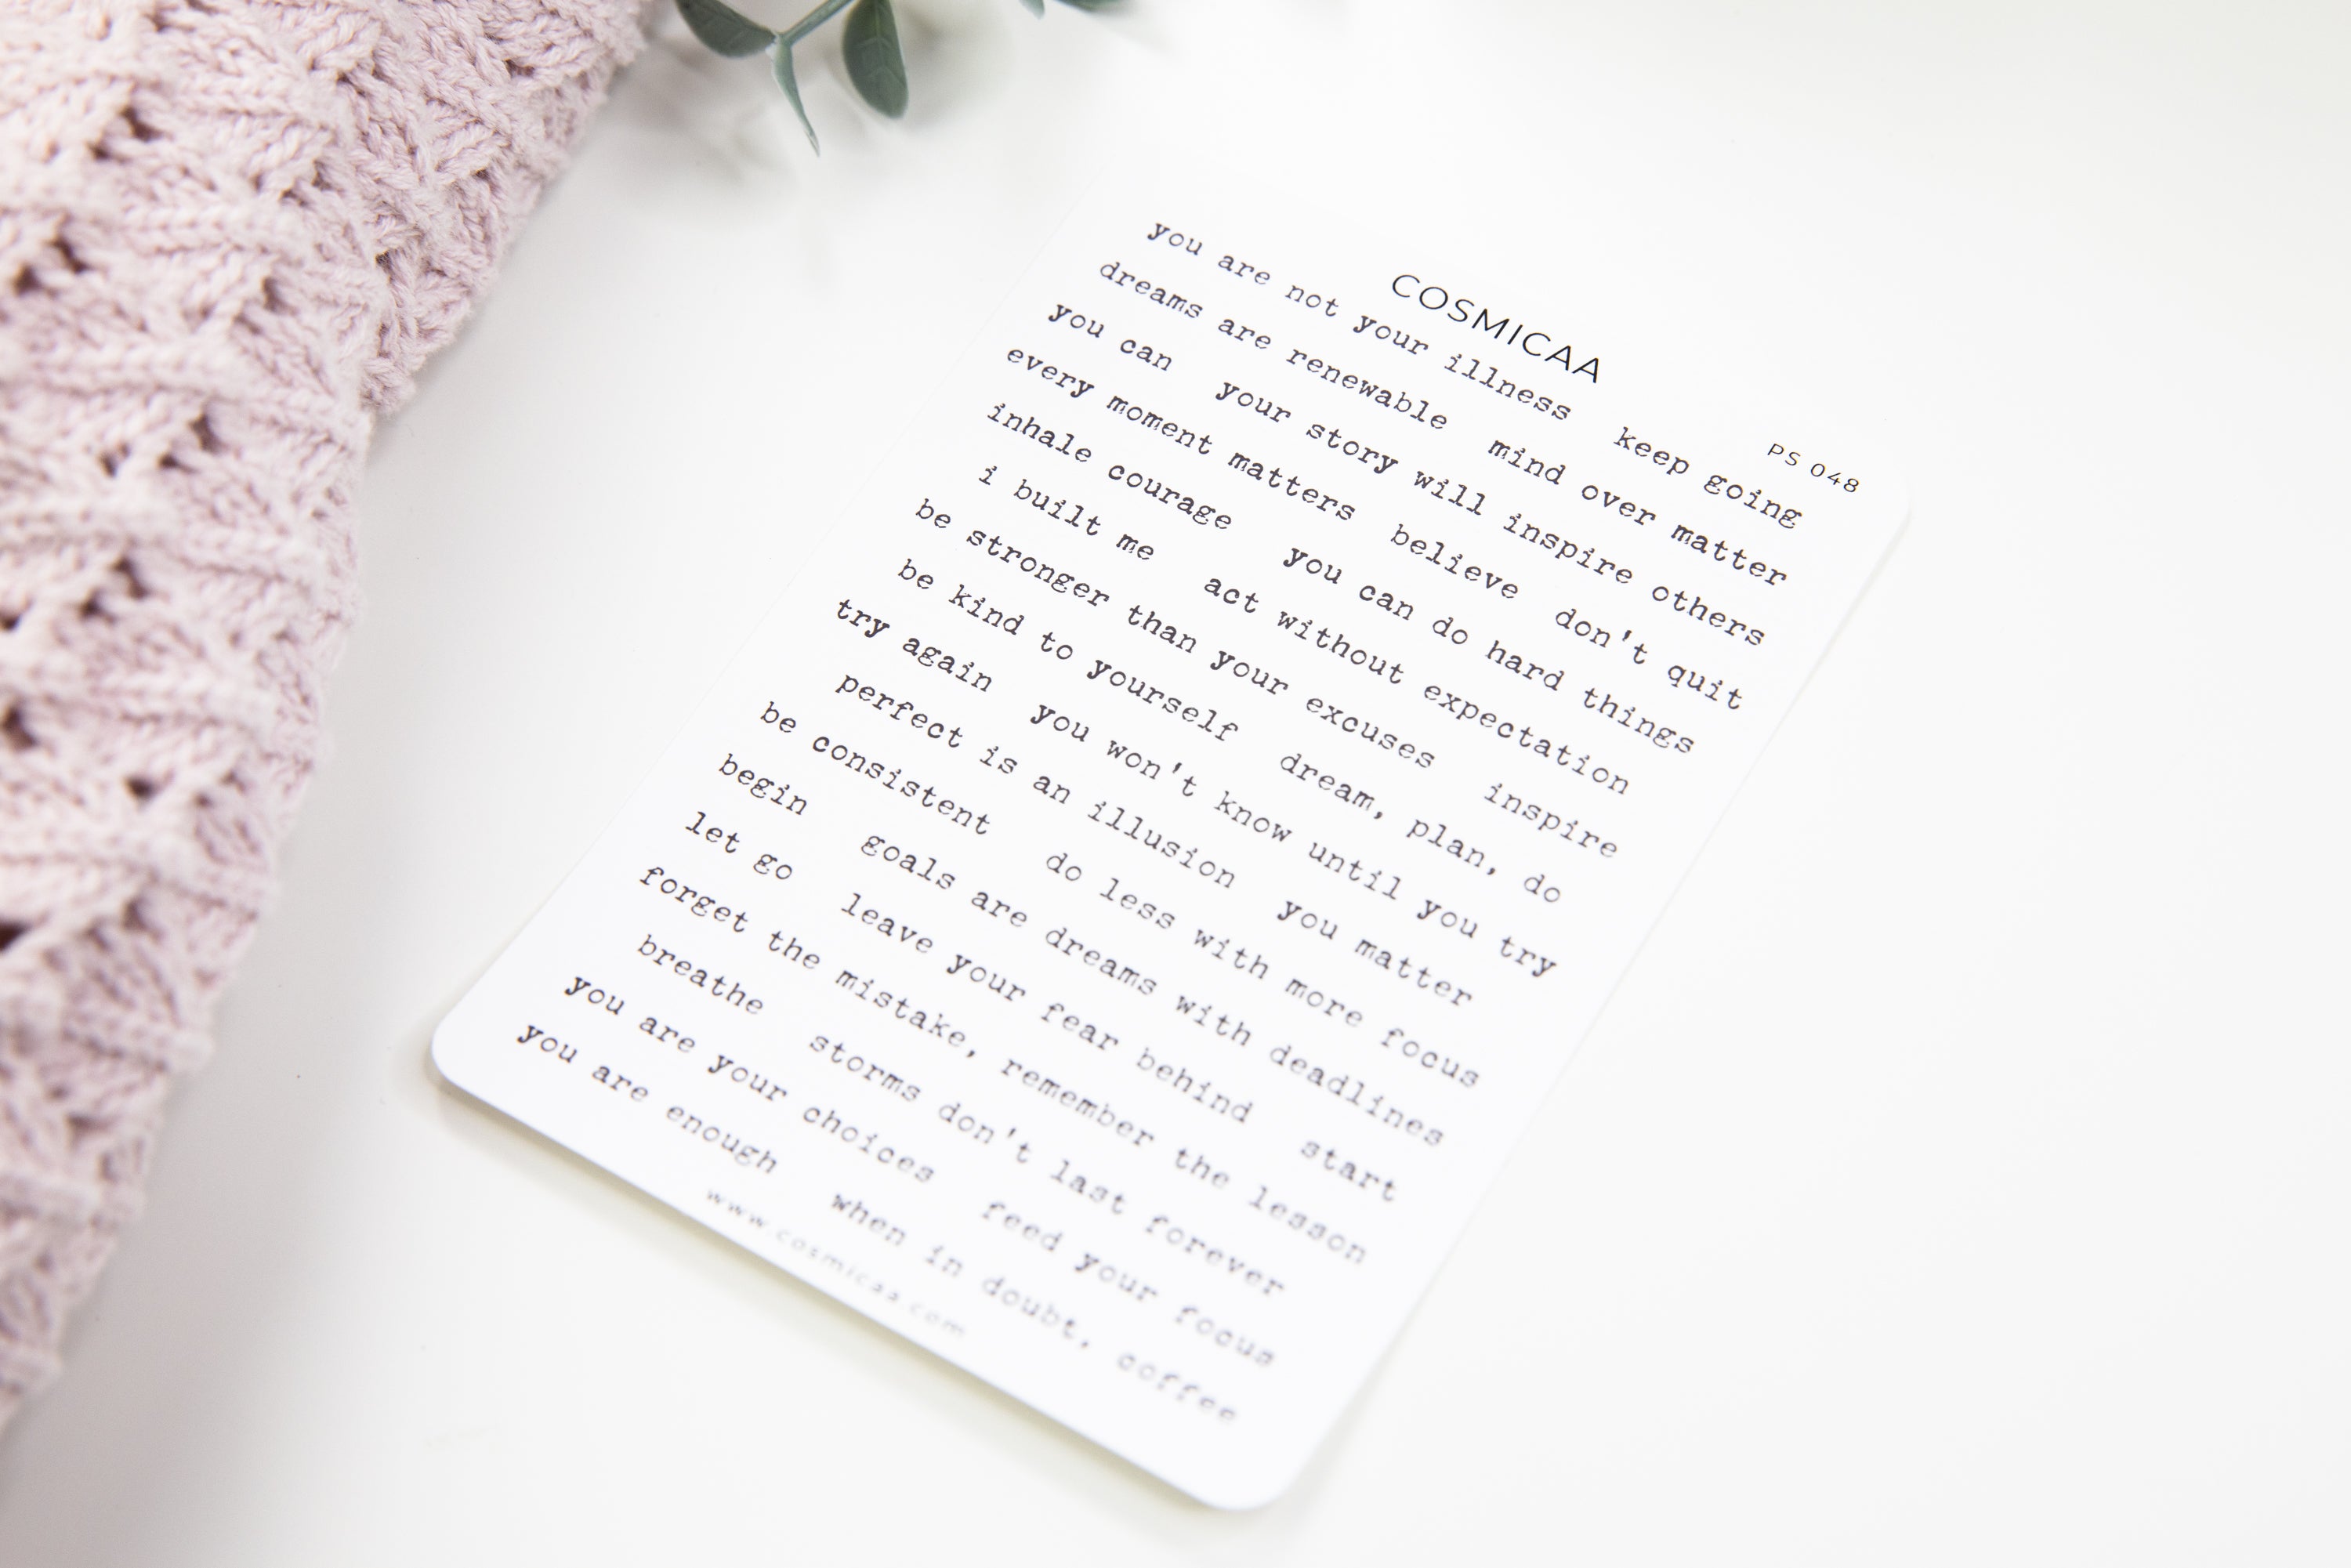 COSMICAA
PS 048
you are not your illness keep going
dreams are renewable mind over matter
you can your story will inspire others
every moment matters believe don't quit
inhale courage you can do hard things
i built me act without expectation
be stronger than your excuses inspire
be kind to yourself dream, plan, do
try again you won't know until you try
perfect is an illusion you matter
be consistent do less with more focus
begin goals are dreams with deadlines
let go leave your fear behind start
forget the mistake, remember the lesson
breathe storms don't last forever
you are your choices feed your focus
you are enough when in doubt, coffee
www.cosmicaa.com